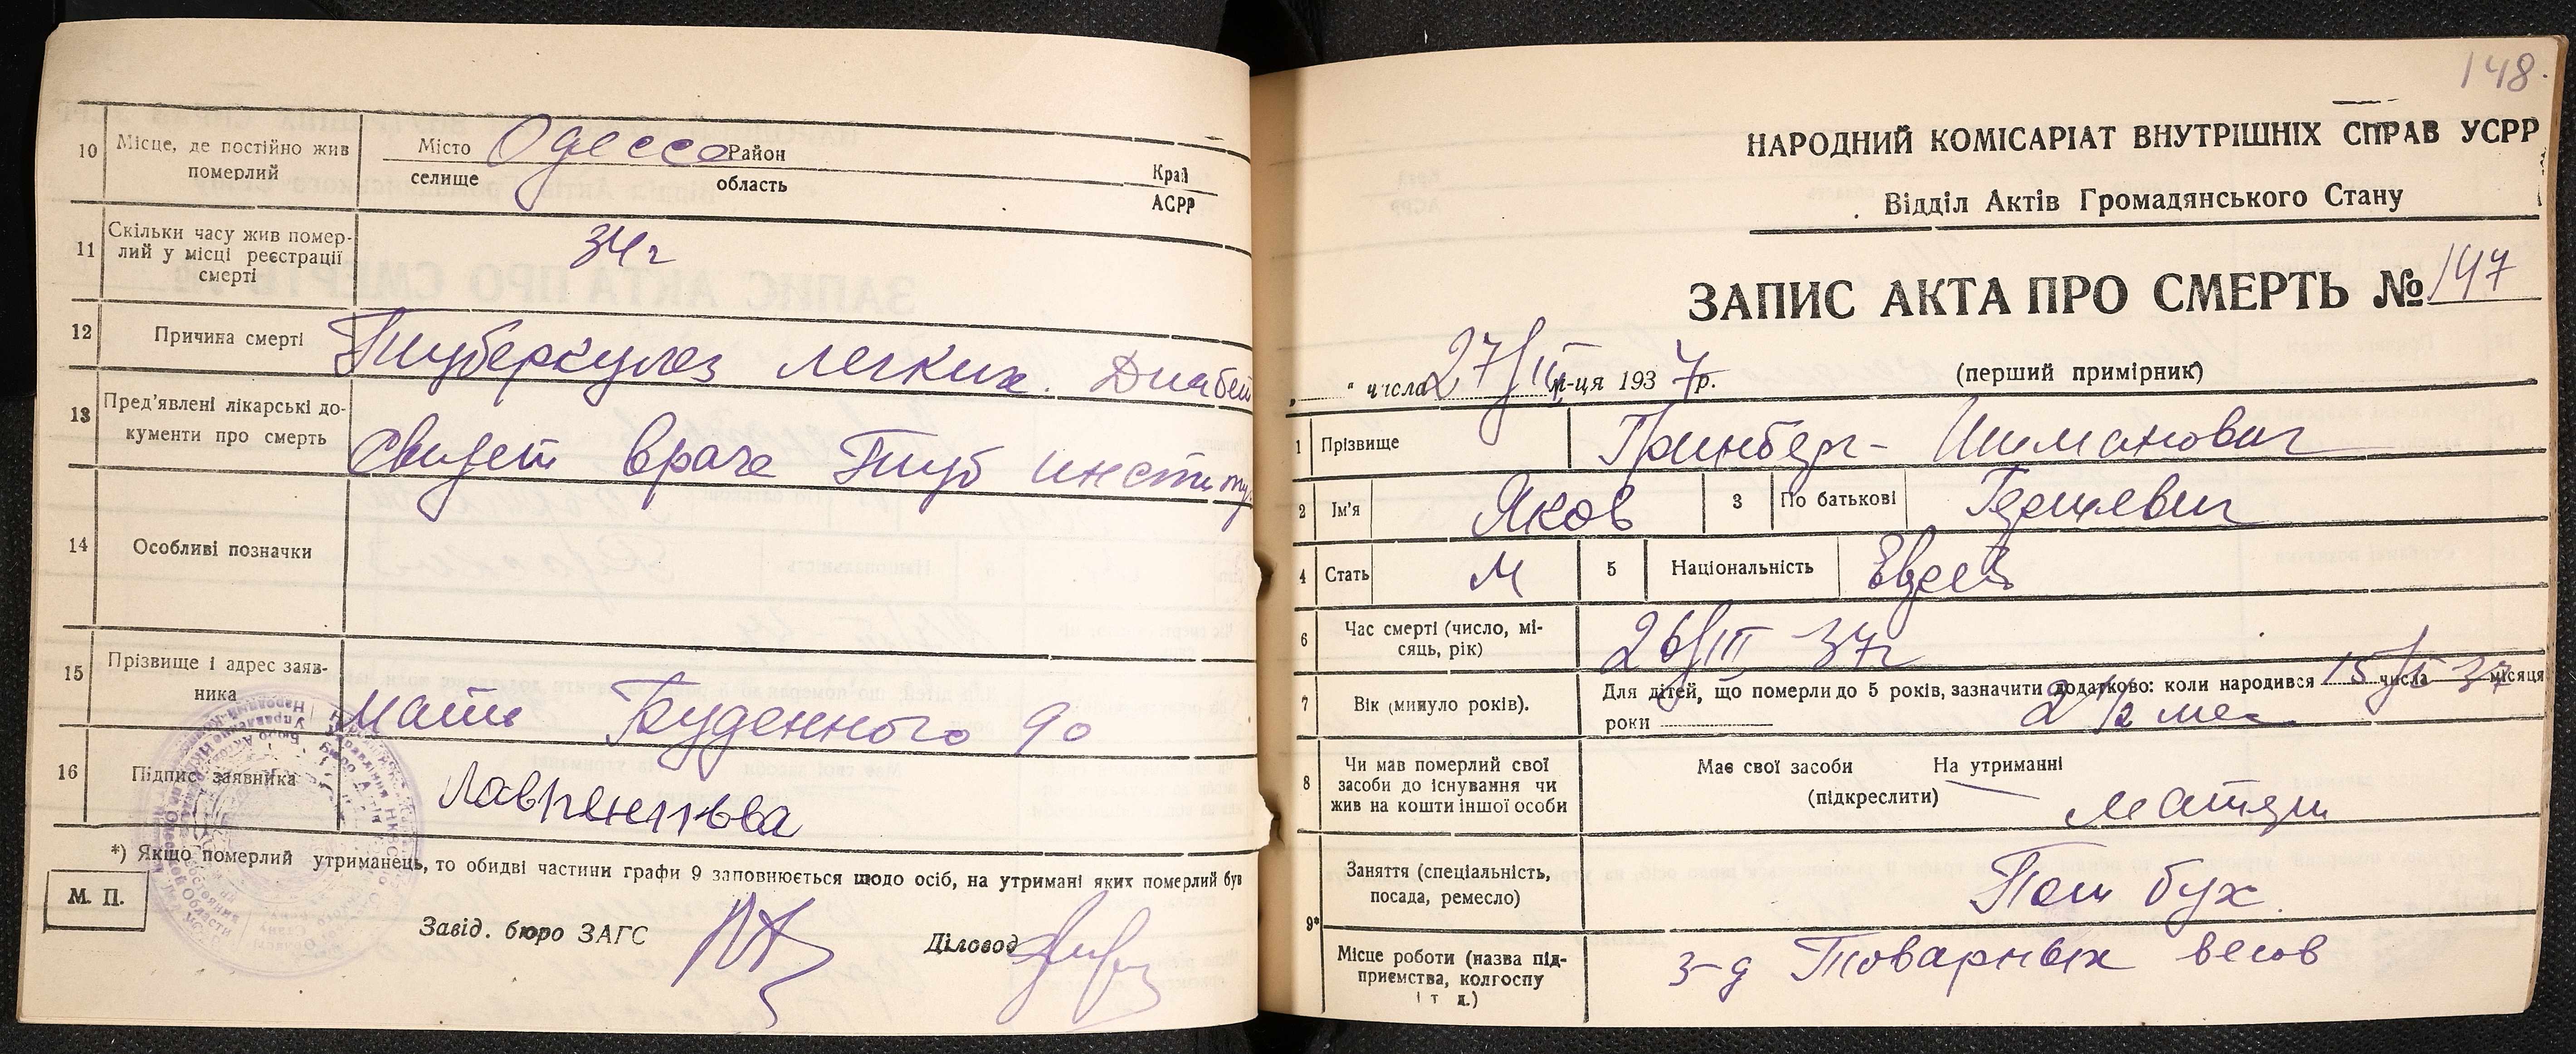 10 Місце, де постійно жив померлий
Місто селище Одесса Район область Край АСРР
11 Скільки часу жив померлий у місці реєстрації смерті
34 г
12 Причина смерті
Туберкулез легких. Диабет
13 Пред'явлені лікарські документи про смерть
Свидет врача Туб институ
14 Особливі позначки
15 Прізвище і адрес заявника
Мать Буденного 90
16 Підпис заявника
Лаврентьва
*) Якщо померлий утриманець, то обидві частини графи 9 заповнюється щодо осіб, на утримані яких померлий був
М. П.
Завід. бюро ЗАГС
Діловод
148.
НАРОДНИЙ КОМІСАРІАТ ВНУТРІШНІХ СПРАВ УСРР
Відділ Актів Громадянського Стану
ЗАПИС АКТА ПРО СМЕРТЬ № 147
" числа 27/III м-ця 1937 р. (перший примірник)
1 Прізвище Гринберг- Шиманович
2 Ім'я Яков 3 По батькові Гершевич
4 Стать М 5 Національність Еврей
6 Час смерті (число, місяць, рік)
26/III 37г
7 Вік (минуло років).
Для дітей, що померли до 5 років, зазначити додатково: коли народився 15/I 37 числа місяця
роки 2 1/2 мес
8 Чи мав померлий свої засоби до існування чи жив на кошти іншої особи
Має свої засоби На утриманні
(підкреслити) матери
9* Заняття (спеціальність, посада, ремесло)
Пом бух.
Місце роботи (назва підприємства, колгоспу і т д.)
З-д Товарных весов